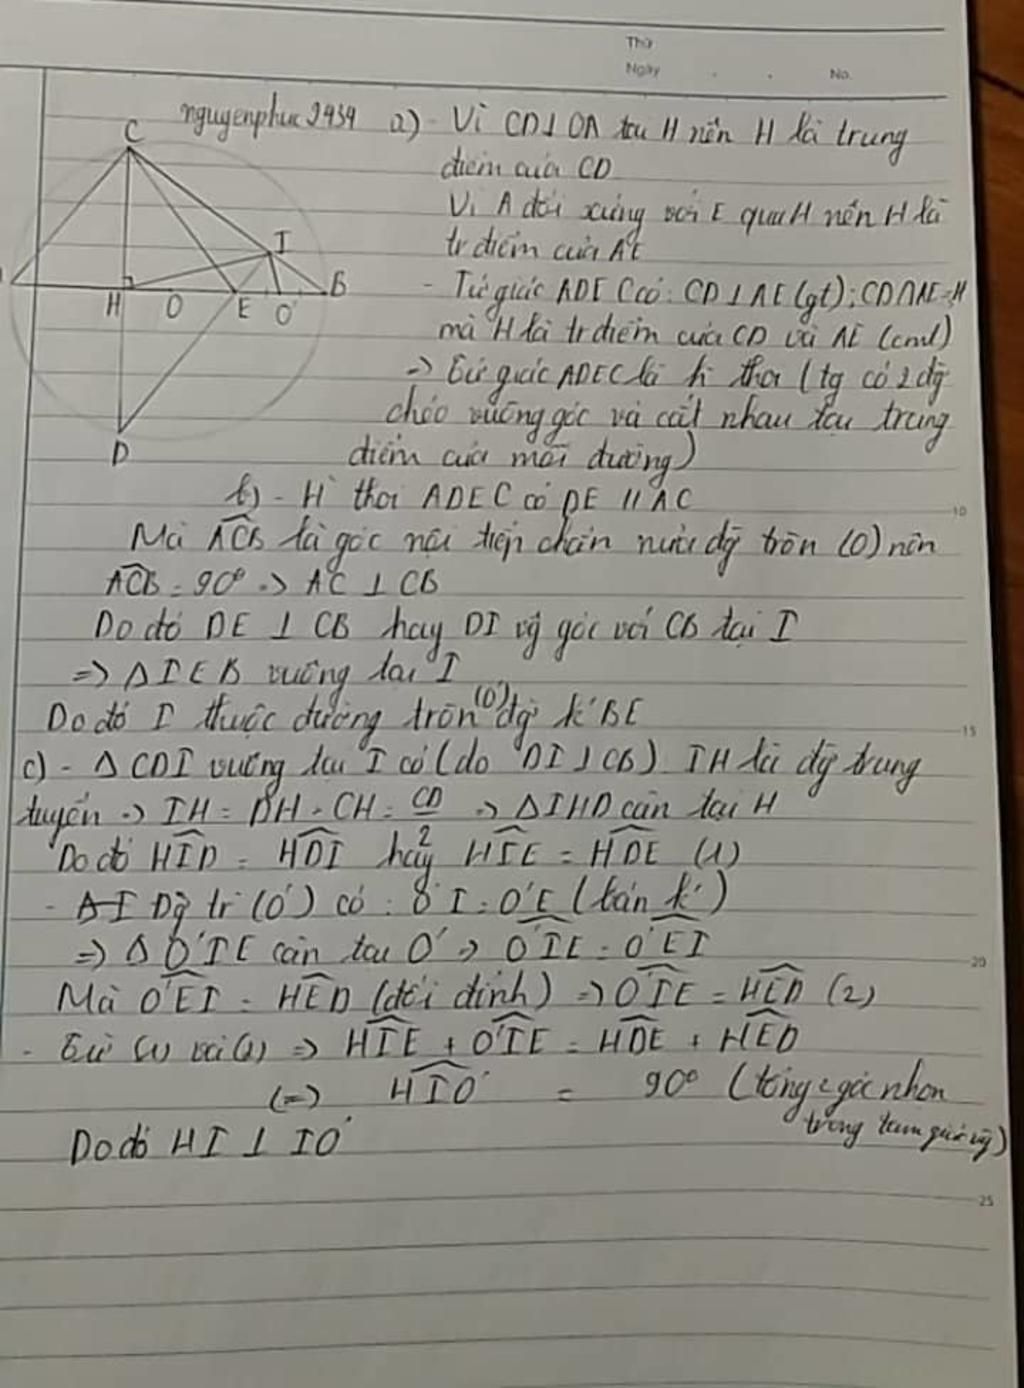 Thứ
Ngày . . No.
nguyenphuc2434 a) - Vì CD⊥OA tại H nên H là trung
điểm của CD
Vì A đối xứng với E qua H nên H là
tr điểm của AE
- Tứ giác ADEC có: CD⊥AE(gt); CD∩AE=H
mà H là tr điểm của CD và AE (cmt)
=> Tứ giác ADEC là h thoi (tg có 2 đg
chéo vuông góc và cắt nhau tại trung
điểm của mỗi đường)
b) - H thoi ADEC có DE // AC
Mà ACB là góc nội tiếp chắn nửa đg tròn (O) nên
ACB = 90° => AC ⊥ CB
Do đó DE ⊥ CB hay DI vg góc với CB tại I
=> ΔIEB vuông tại I
Do đó I thuộc đường tròn (O') đg k' BE
c) - ΔCDI vuông tại I có (do DI⊥CB) IH là đg trung
tuyến => IH = DH = CH = CD/2 => ΔIHD cân tại H
Do đó HID = HDI hay HIE = HDE (1)
- Đg tr (O') có: O'I = O'E (bán k')
=> Δ O'IE cân tại O' => O'IE = O'EI
Mà O'EI = HED (đối đỉnh) => O'IE = HED (2)
- Từ (1) và (2) => HIE + O'IE = HDE + HED
(=) HIO' = 90° (tổng 2 góc nhọn
trong tam giác vg)
Do đó HI ⊥ IO'
C
I
H O E O' B
D
10
15
20
25